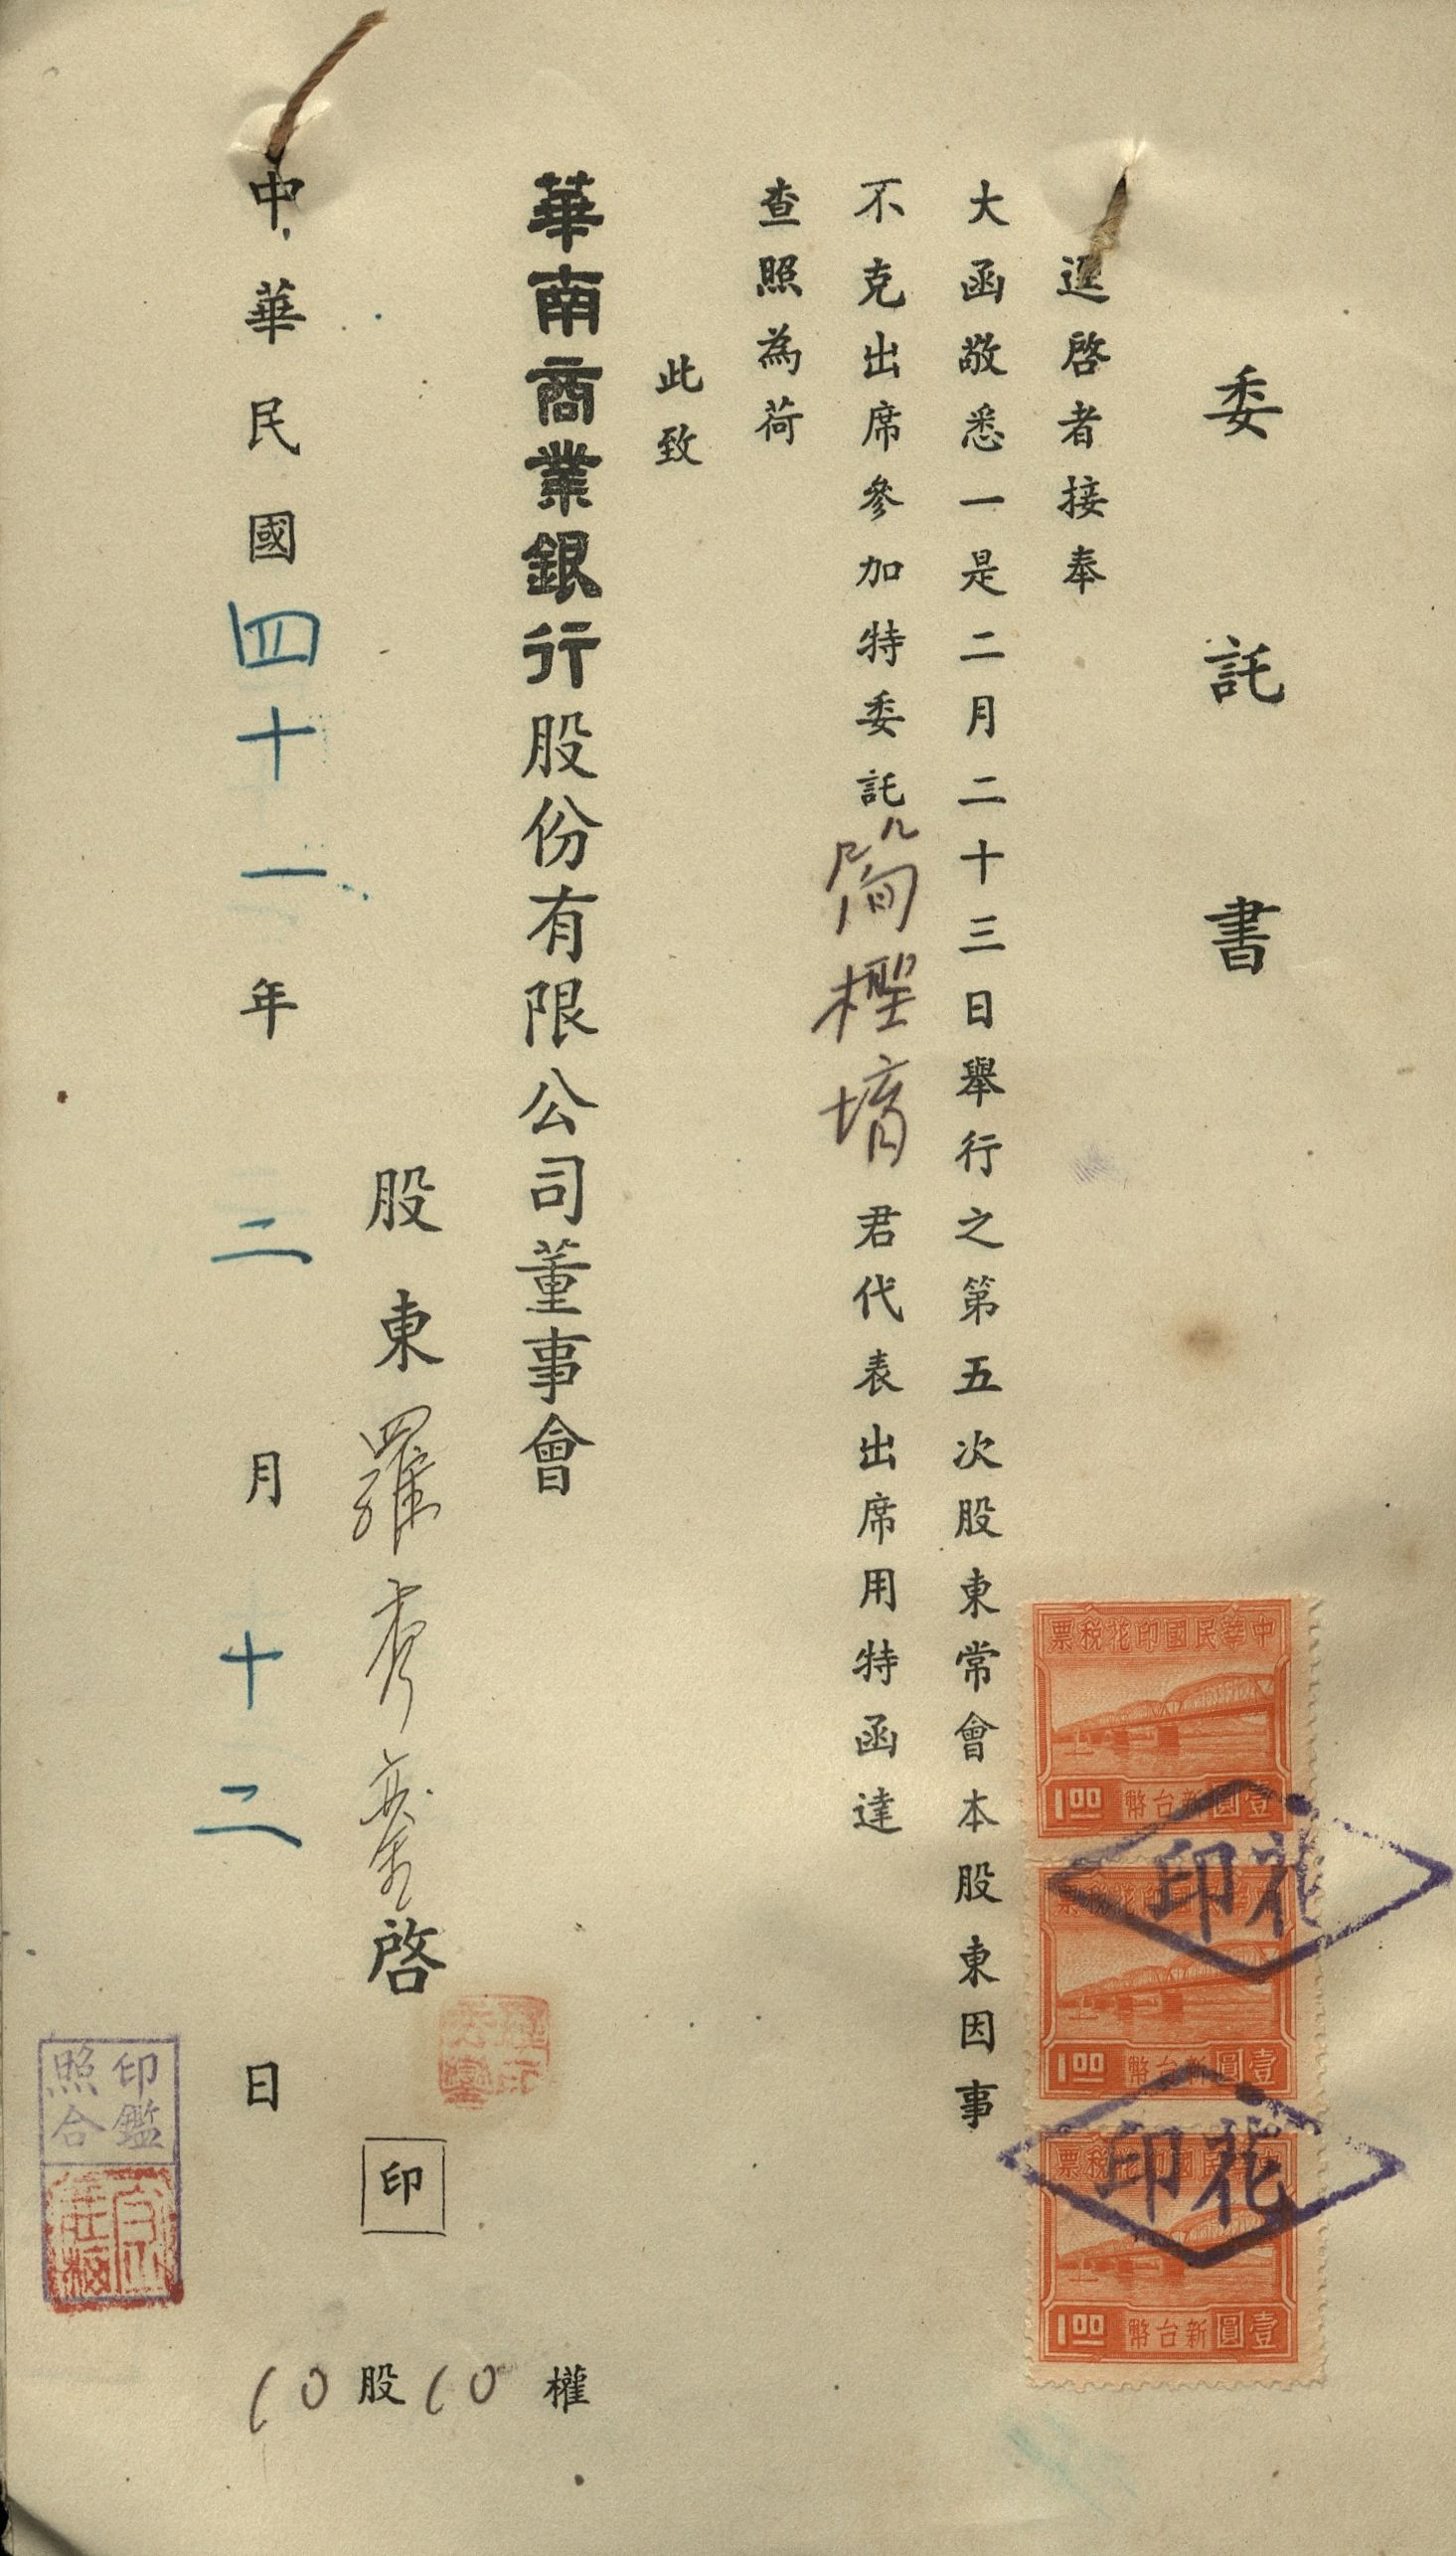 委託書
逕啓者接奉
大函敬悉一是二月二十三日舉行之第五次股東常會本股東因事
不克出席參加特委託簡檉堉君代表出席用特函達
查照為荷
此致
華南商業銀行股份有限公司董事會
股東羅秀鑾啓
印
10股10權
中華民國四十一年二月十二日
印鑑
照合
中華民國印花稅票
壹圓新台幣
1.00
花印
中華民國印花稅票
壹圓新台幣
1.00
花印
中華民國印花稅票
壹圓新台幣
1.00